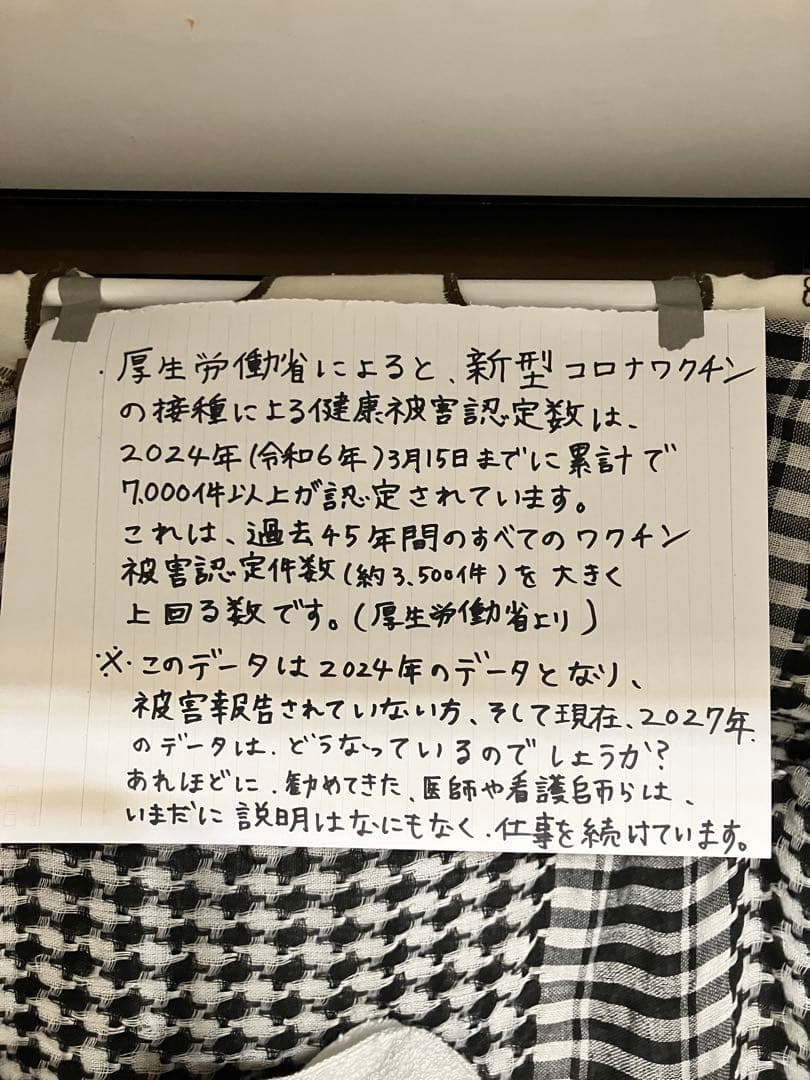 ・厚生労働省によると、新型コロナワクチン
の接種による健康被害認定数は、
2024年(令和6年)3月15日までに累計で
7,000件以上が認定されています。
これは、過去45年間のすべてのワクチン
被害認定件数(約3,500件)を大きく
上回る数です。(厚生労働省より)
※・このデータは2024年のデータとなり、
被害報告されていない方、そして現在、2027年.
のデータは、どうなっているのでしょうか?
あれほどに、勧めてきた、医師や看護師らは、
いまだに説明はなにもなく、仕事を続けています。